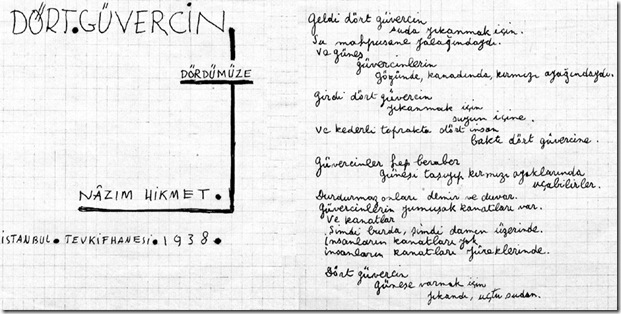 DÖRT.GÜVERCİN
DÖRDÜMÜZE
NÂZIM HİKMET.
İSTANBUL.TEVKİFHANESİ.1938.
Geldi dört güvercin
suda yıkanmak için.
Su mahpusane yalağındaydı.
Ve güneş
güvercinlerin
gözünde, kanadında, kırmızı ayağındaydı.
Girdi dört güvercin
yıkanmak için
suyun içine.
Ve kederli toprakta dört insan
baktı dört güvercine.
Güvercinler hep beraber
Güneşi taşıyıp kırmızı ayaklarında
uçabilirler.
Durdurmaz onları demir ve duvar.
Güvercinlerin yumuşak kanatları var.
Ve kanatlar
Şimdi burda, şimdi damın üzerinde.
İnsanların kanatları yok
İnsanların kanatları yüreklerinde.
Dört güvercin
Güneşe varmak için
yıkandı, uçtu sudan.